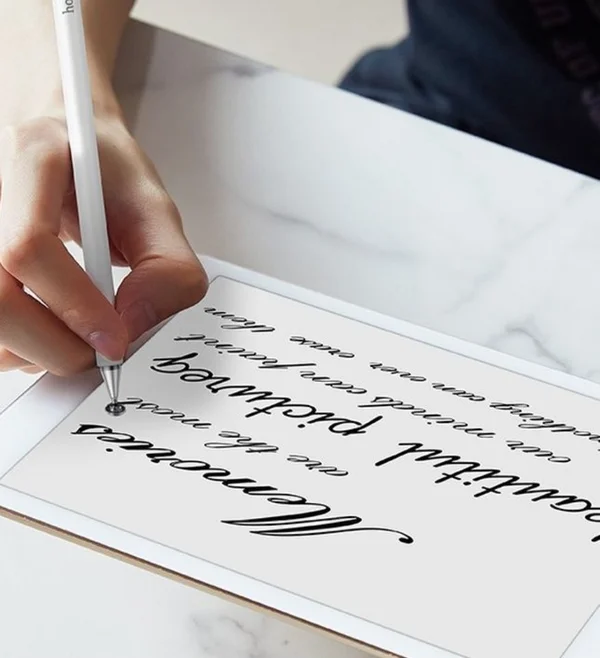 ho
Memories
are the most
beautiful pictures
our minds can paint
nothing can ever erase them